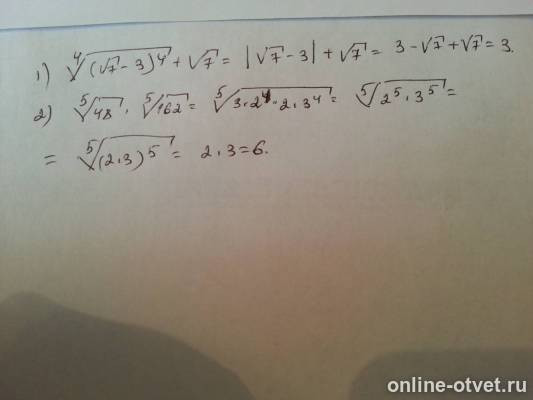 1) ⁴√(√7 - 3)⁴ + √7 = |√7 - 3| + √7 = 3 - √7 + √7 = 3.
2) ⁵√48 · ⁵√162 = ⁵√3·2⁴·2·3⁴ = ⁵√2⁵·3⁵ =
= ⁵√(2·3)⁵ = 2·3 = 6.
online-otvet.ru